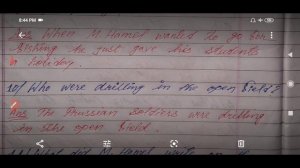 8:44 PM
Ans When M. Hamel wanted to go for
fishing he just gave his students
a holiday.
10/ Who were drilling in the open field?
Ans The Prussian soldiers were drilling
in the open field.